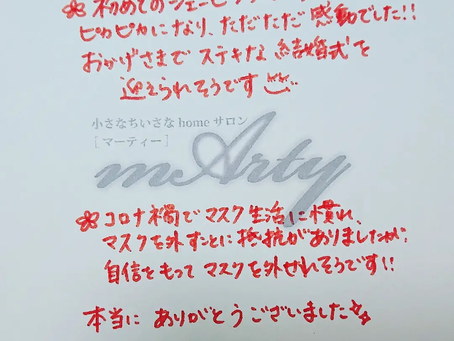 初めてのシェービング
ピカピカになり、ただただ感動でした!!
おかげさまで ステキな 結婚式を
迎えられそうです
小さなちいさなhomeサロン
[マーティー]
mArty
コロナ禍でマスク生活に慣れ、
マスクを外すことに抵抗がありましたが、
自信をもって マスクを外せれそうです!!
本当に ありがとうございました